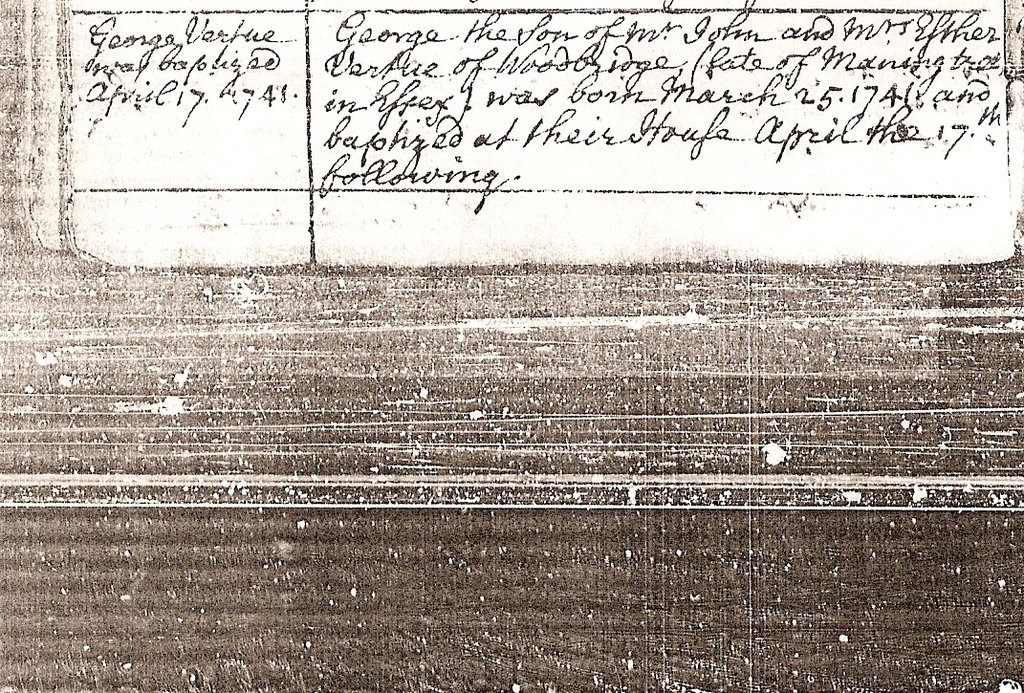 George Vertue
was baptized
April 17. 1741.
George the Son of Mr John and Mrs Esther
Vertue of Woodbridge, (late of Maningtree
in Essex) was born March 25. 1741. and
baptized at their House April the 17.th
following.